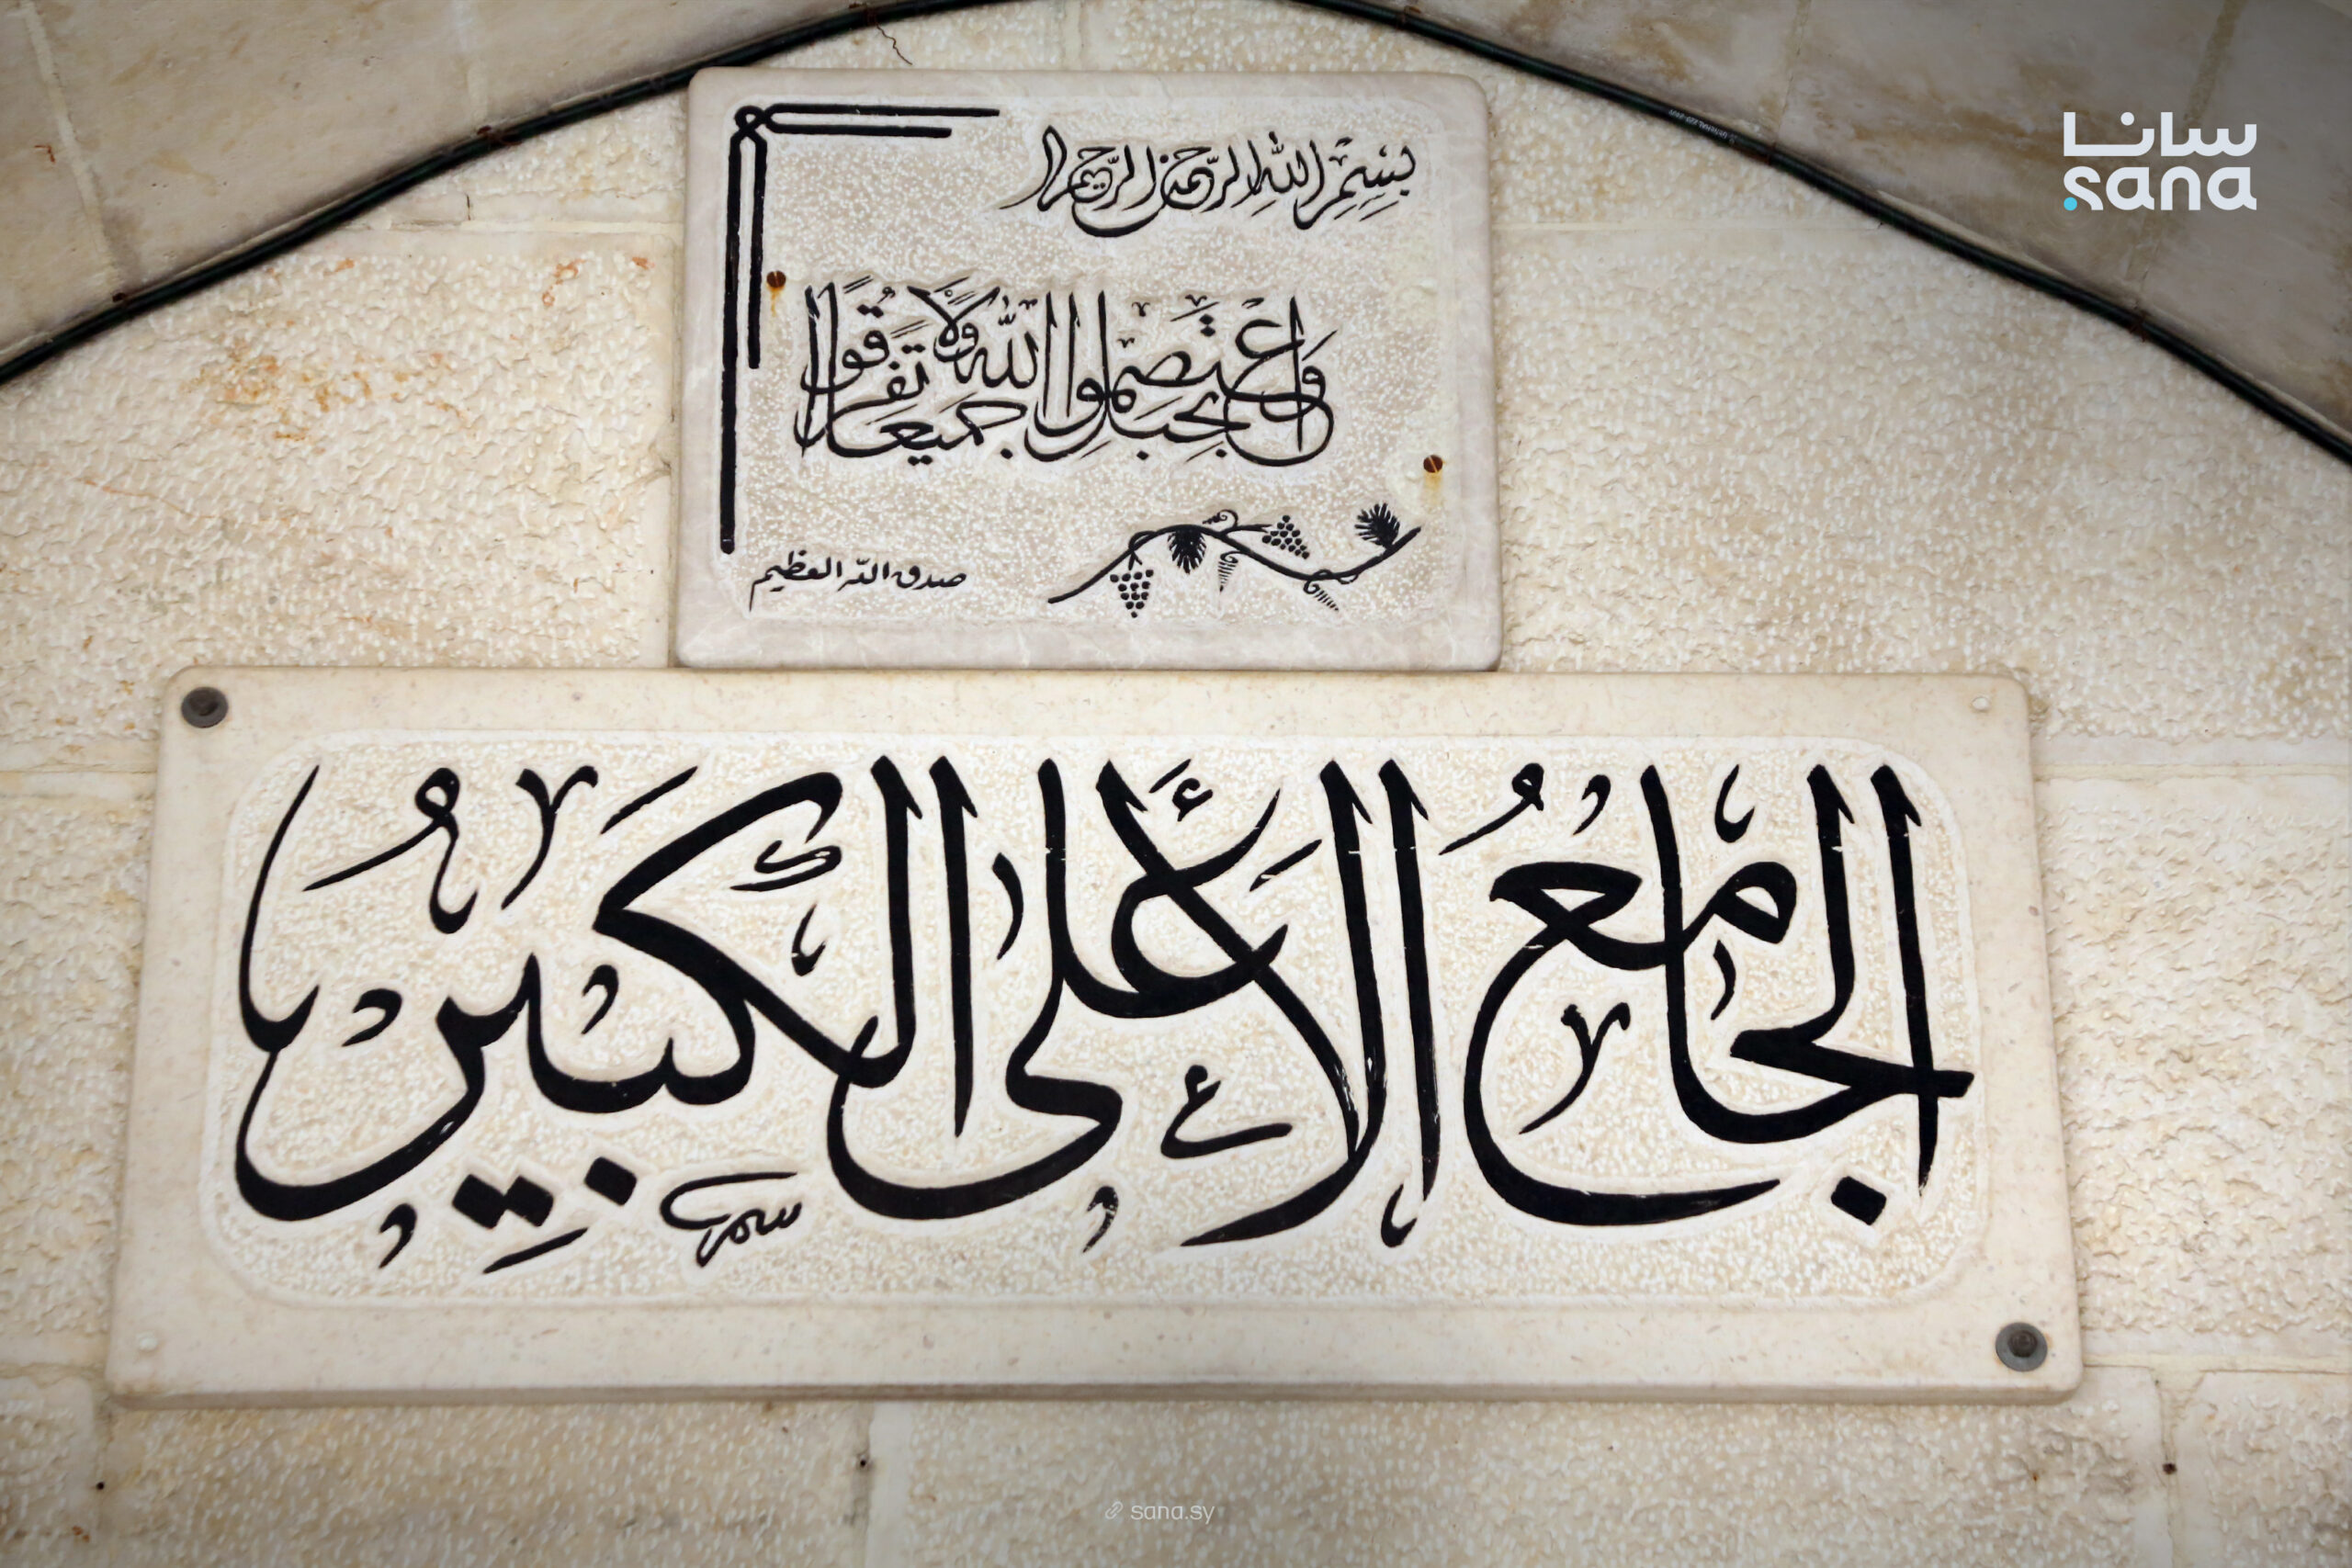 سانا
sana
بِسْمِ اللهِ الرَّحْمنِ الرَّحِيمِ
وَاعْتَصِمُوا بِحَبْلِ اللَّهِ جَمِيعًا وَلَا تَفَرَّقُوا
صدق الله العظيم
الجامعُ الأعلى الكَبِيرُ
sana.sy